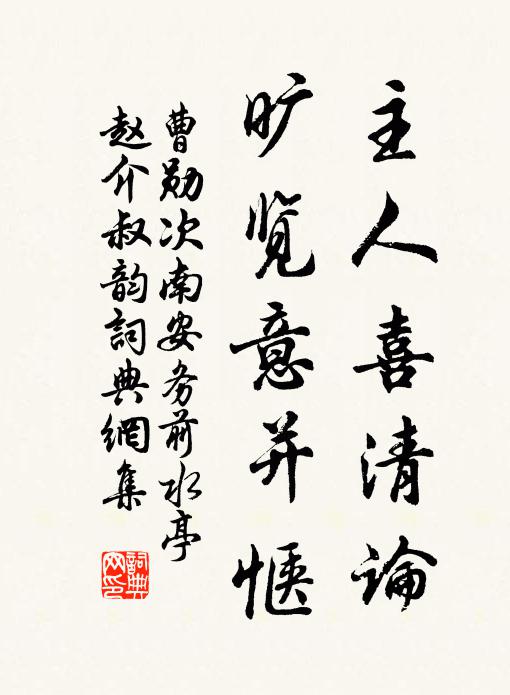 主人喜清論
旷览意并惬
曹勋次南安务前水亭
赵介叔韵詞典網集
詞典网印